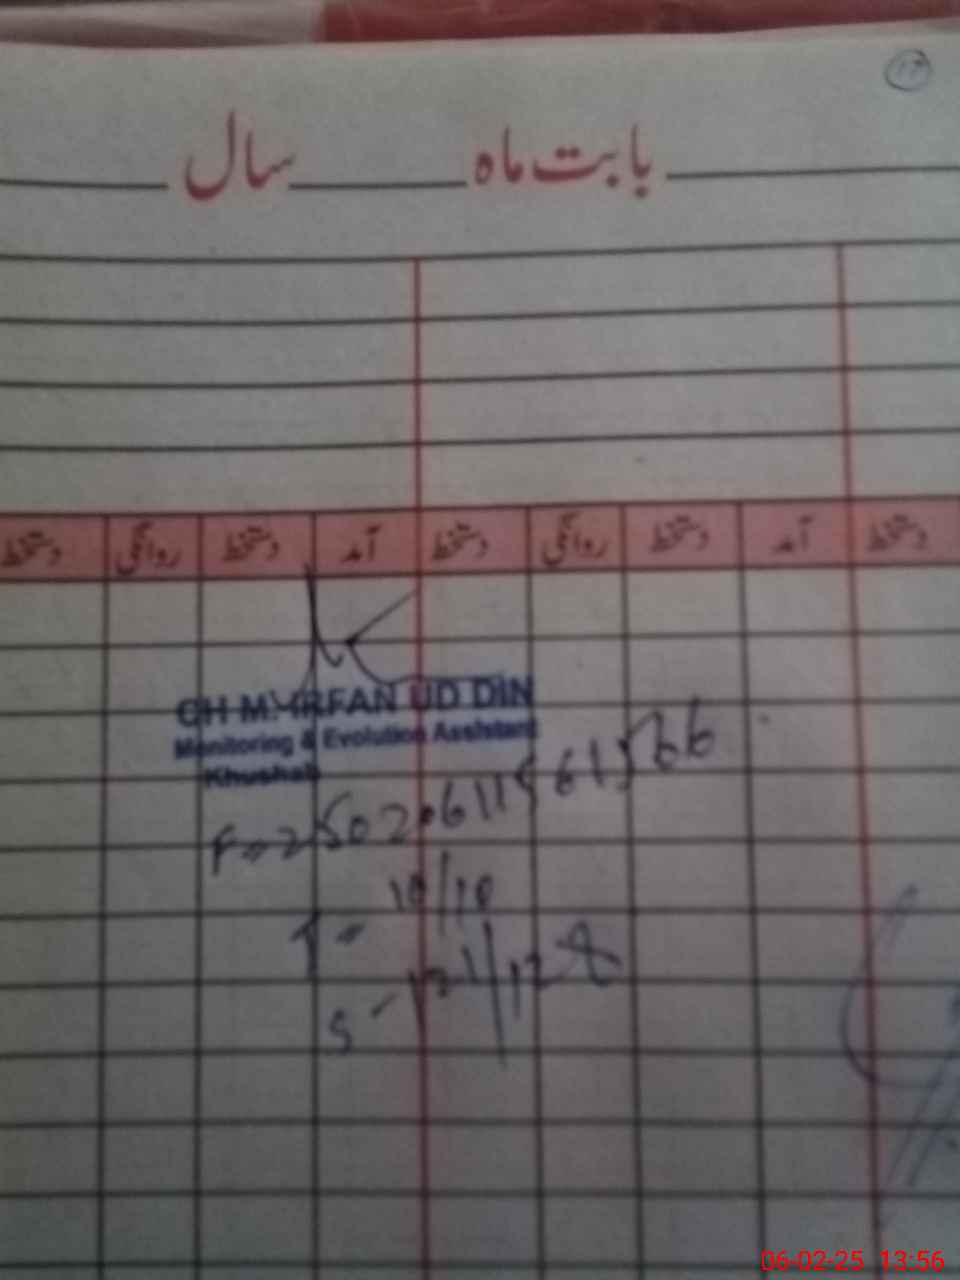 17
بابت ماہ ______ سال ______
دستخط آمد دستخط روانگی دستخط آمد دستخط روانگی دستخط
CH M. IRFAN UD DIN
Monitoring & Evolution Assistant
Khushab
F= 25020611561566
T= 10/10
S - 121/128
06-02-25 13:56